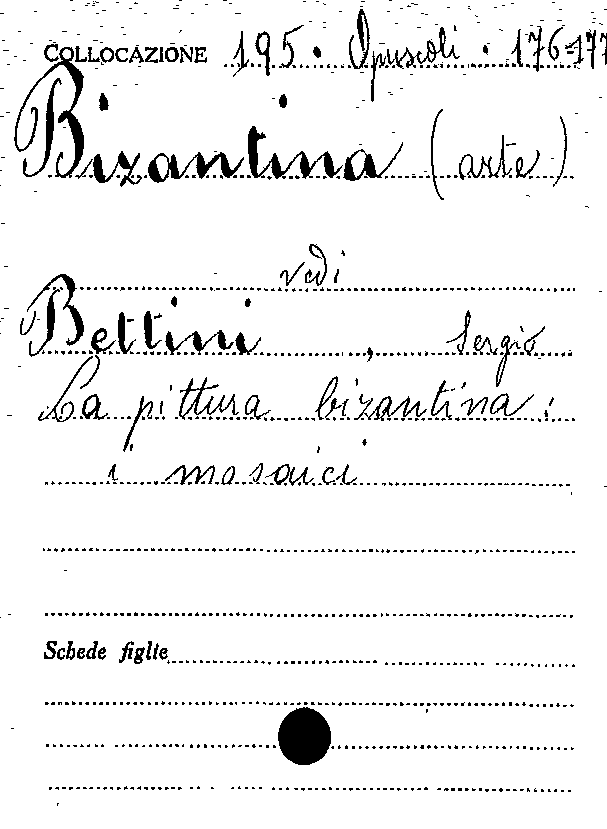 COLLOCAZIONE 195 · Opuscoli · 176-177
Bizantina (arte)
vedi
Bettini, Sergio
La pittura bizantina:
i mosaici
Schede figlie